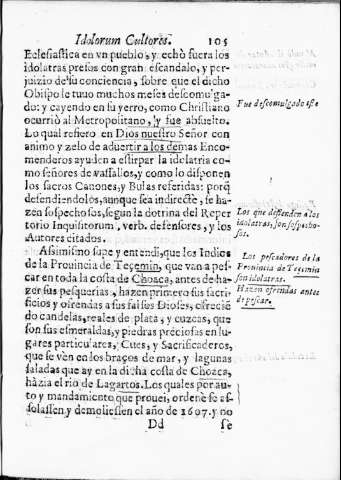 Idolorum Cultores.
105
Eclesiastica en vn pueblo, y echò fuera los
idolatras presos con gran escandalo, y per-
juizio de su conciencia, sobre que el dicho
Obispo le tuuo muchos meses descomul-
gado: y cayendo en su yerro, como Christiano
ocurriò al Metropolitano, y fue absuelto.
Fue descomulgado esse
Lo qual refiero en Dios nuestro Señor con
animo y zelo de aduertir a los demas Enco-
menderos ayuden a estirpar la idolatria co-
mo señores de vassallos, y como lo disponen
los sacros Canones, y Bulas referidas: porq̃
defendiendolos, aunque sea indirectè, se ha-
zen sospechosos, segun la dotrina del Reper
torio Inquisitorum, verb. defensores, y los
Autores citados.
Los que defienden a los
idolatras, son sospecho-
sos.
Assimismo supe y entendi, que los Indios
de la Prouincia de Teçemin, que van a pes-
car en toda la costa de Choaca, antes de ha-
zer sus pesquerias, hazen primero sus sacri-
ficios y ofrendas a sus falsos Dioses, ofrecië
do candelas, reales de plata, y cuzcas, que
son sus esmeraldas, y piedras preciosas en lu-
gares particulares, Cues, y Sacrificaderos,
que se vèn en los braços de mar, y lagunas
saladas que ay en la dicha costa de Choaca,
hàzia el rio de Lagartos. Los quales por au-
to y mandamiento que prouei, ordenè se as-
solassen y demoliessen el año de 1607. y no
Los pescadores de la
Prouincia de Teçemin
son idolatras.
Hazen ofrendas antes
de pescar.
Dd
se